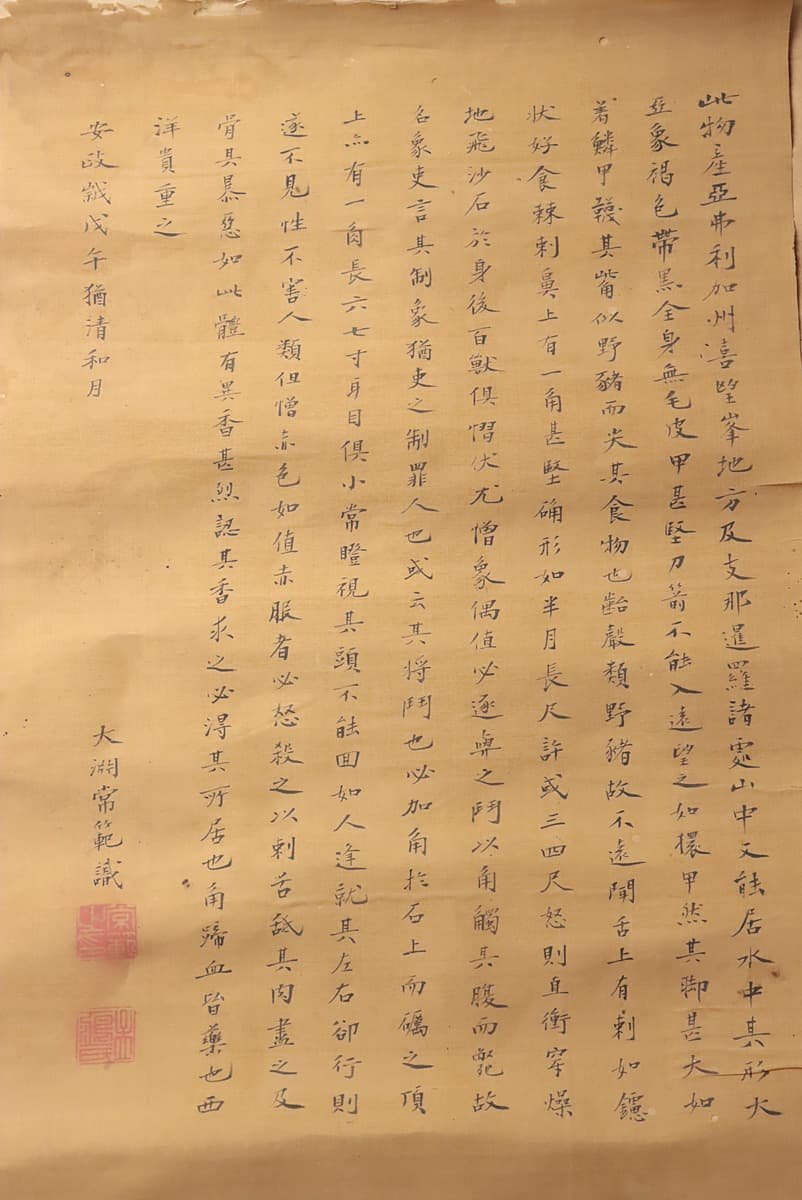 此物産亞弗利加州喜望峯地方及支那暹羅諸處山中又能居水中其形大
亞象褐色帶黒全身無毛皮甲甚堅刀箭不能入遠望之如擐甲然其脚甚大如
着鱗甲韈其嘴似野豬而尖其食物也齝聲類野豬故不遠聞舌上有刺如鑢
状好食棘刺鼻上有一角甚堅确形如半月長尺許或三四尺怒則直衝牢燥
地飛沙石於身後百獣倶慴伏尤憎象偶值必逐與之鬥以角觸其腹而斃故
名象吏言其制象猶吏之制罪人也或云其将鬥也必加角於石上而礪之頂
上亦有一角長六七寸耳目倶小常瞪視其頭不能囬如人逢就其左右卻行則
遂不見性不害人類但憎赤色如值赤服者必怒殺之以刺舌舐其肉盡之及
骨其暴惡如此體有異香甚烈認其香求之必得其所居也角蹄血皆藥也西
洋貴重之
安政歳戊午猶清和月
大淵常範識